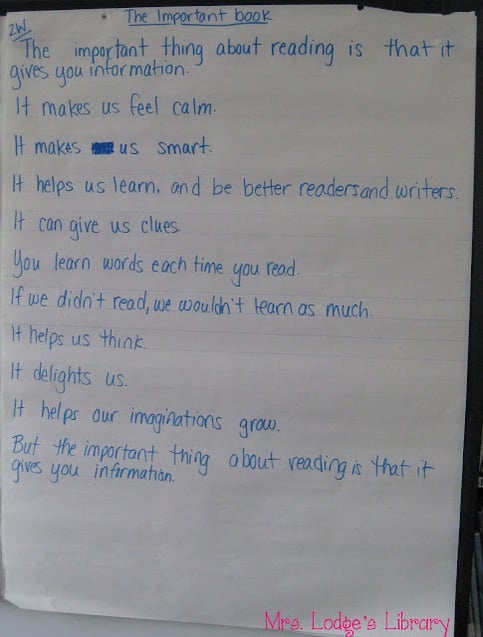 2W
The Important book
The important thing about reading is that it
gives you information.
It makes us feel calm.
It makes us smart.
It helps us learn, and be better readers and writers.
It can give us clues.
You learn words each time you read.
If we didn't read, we wouldn't learn as much.
It helps us think.
It delights us.
It helps our imaginations grow.
But the important thing about reading is that it
gives you infirmation.
Mrs. Lodge's Library